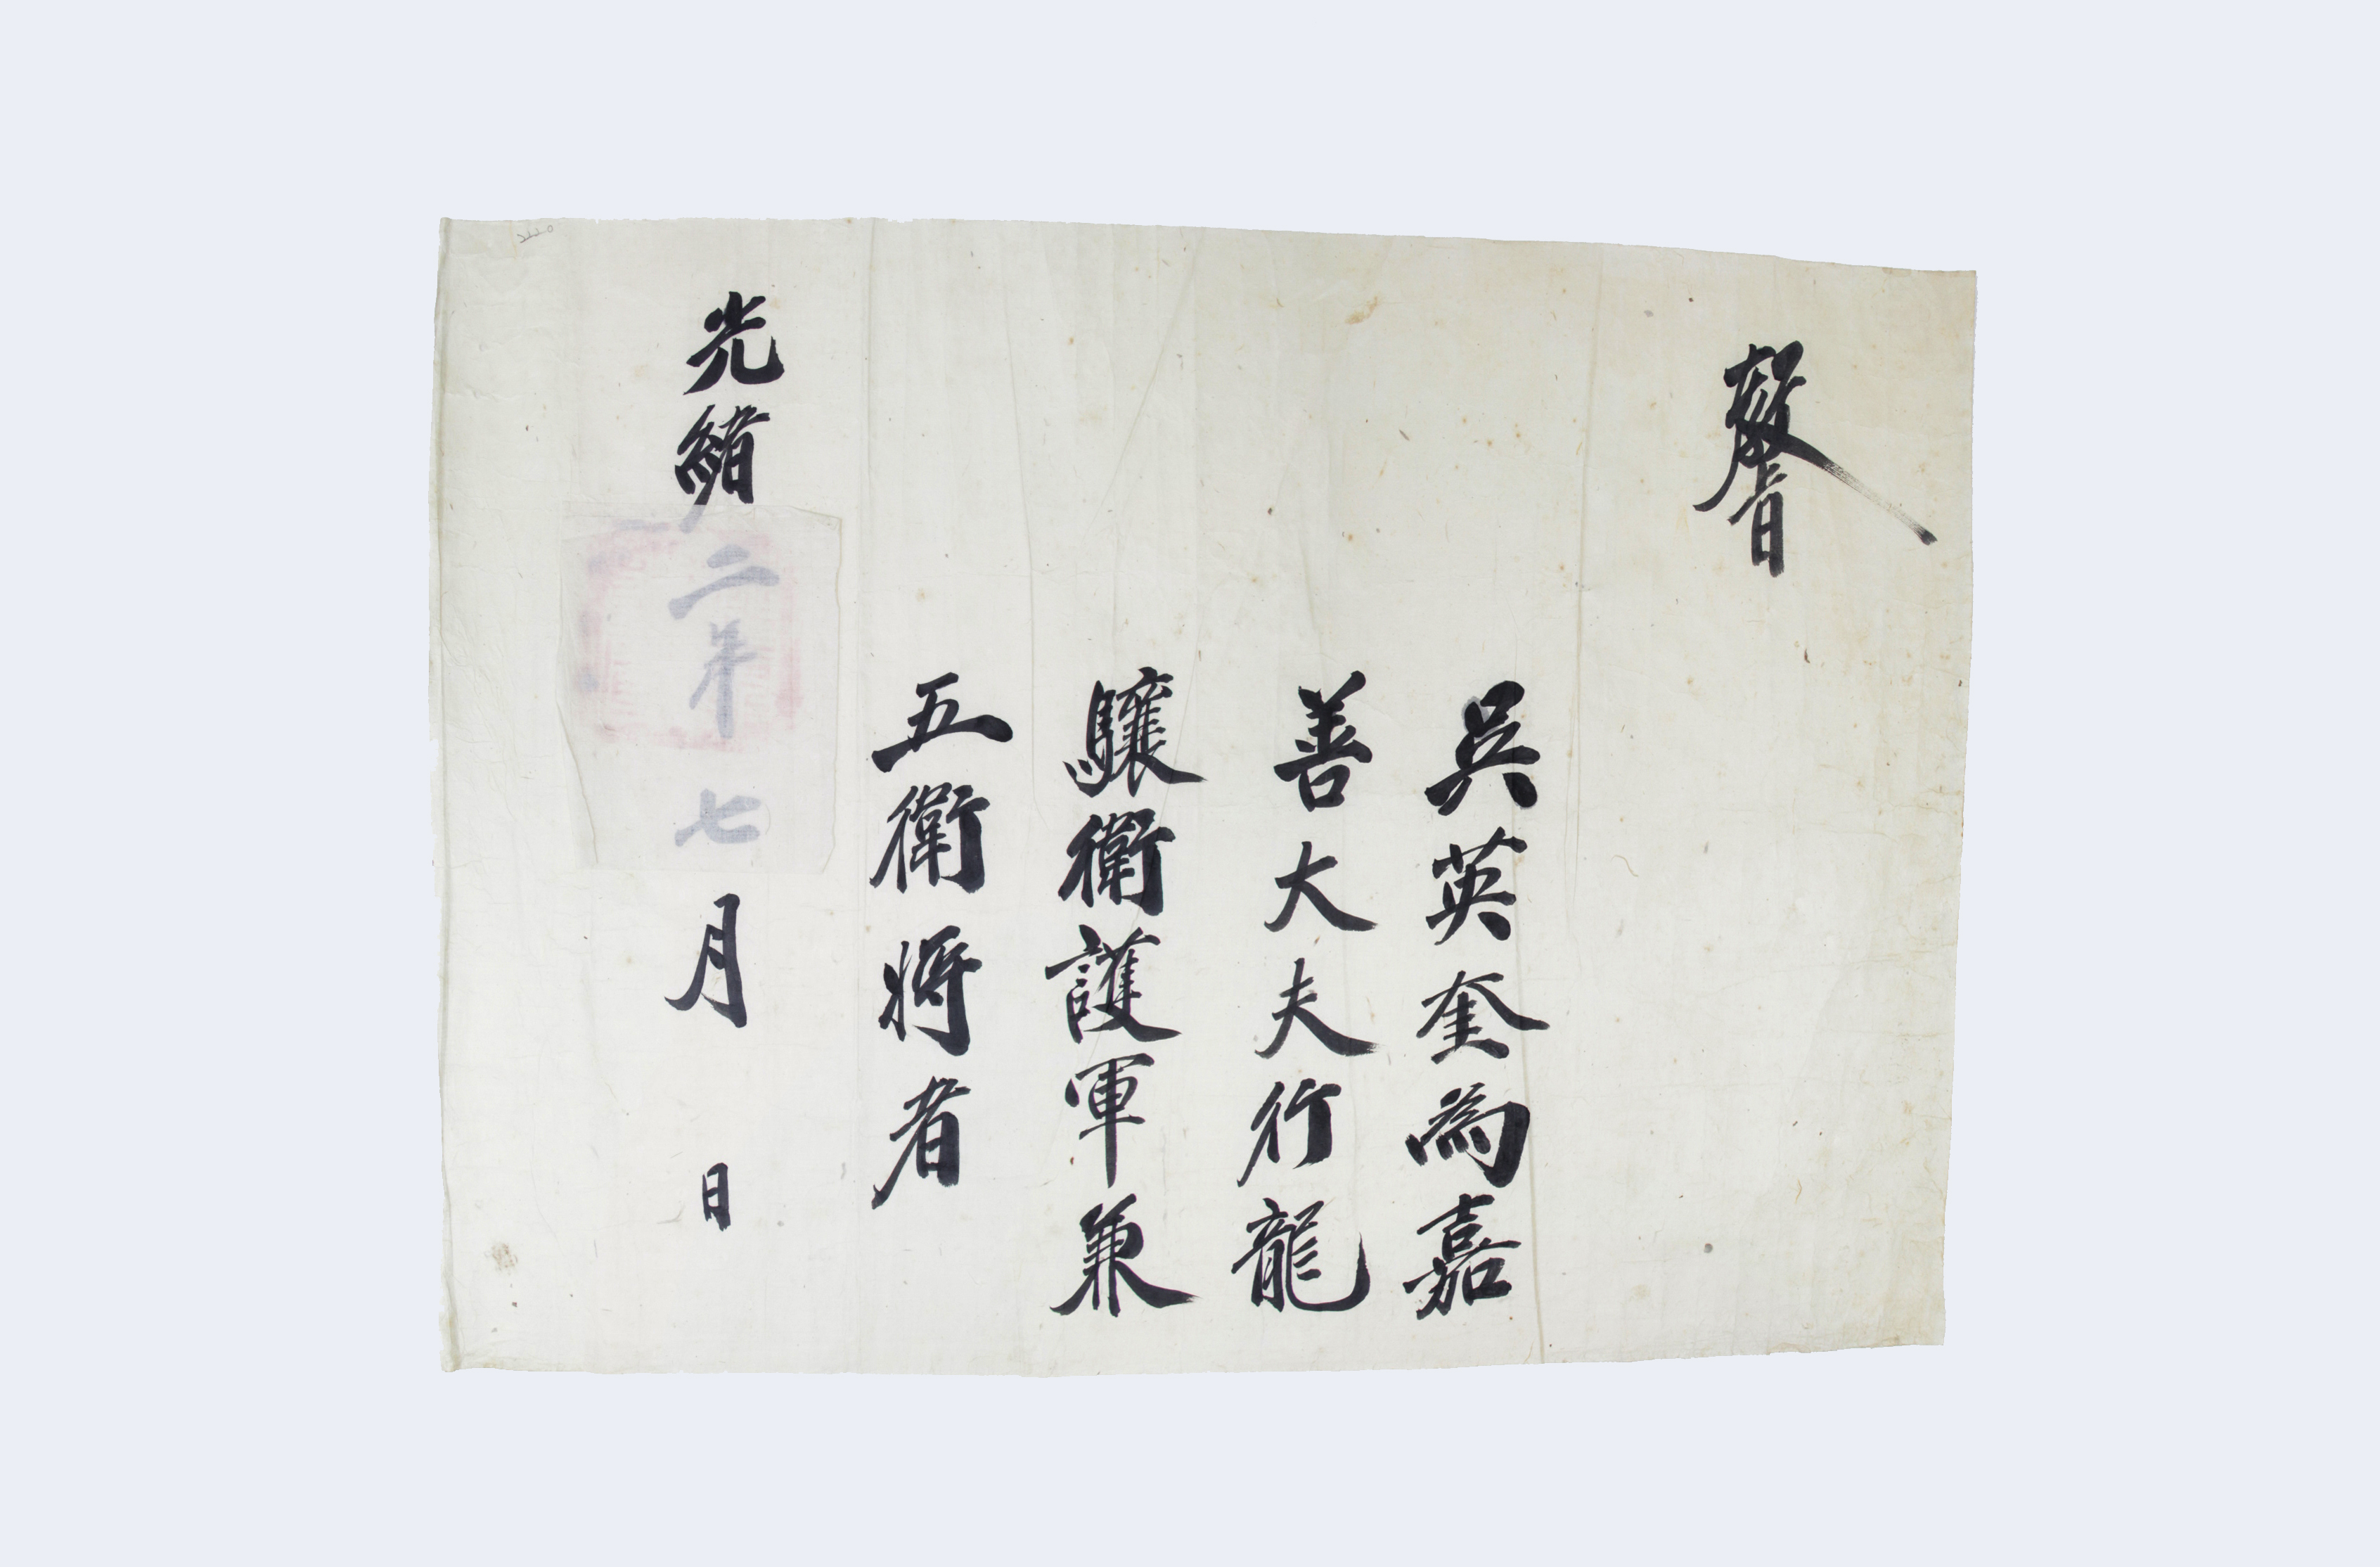 敎旨
吳英奎為嘉
善大夫行龍
驤衛護軍兼
五衛將者
光緖二年七月 日
2220